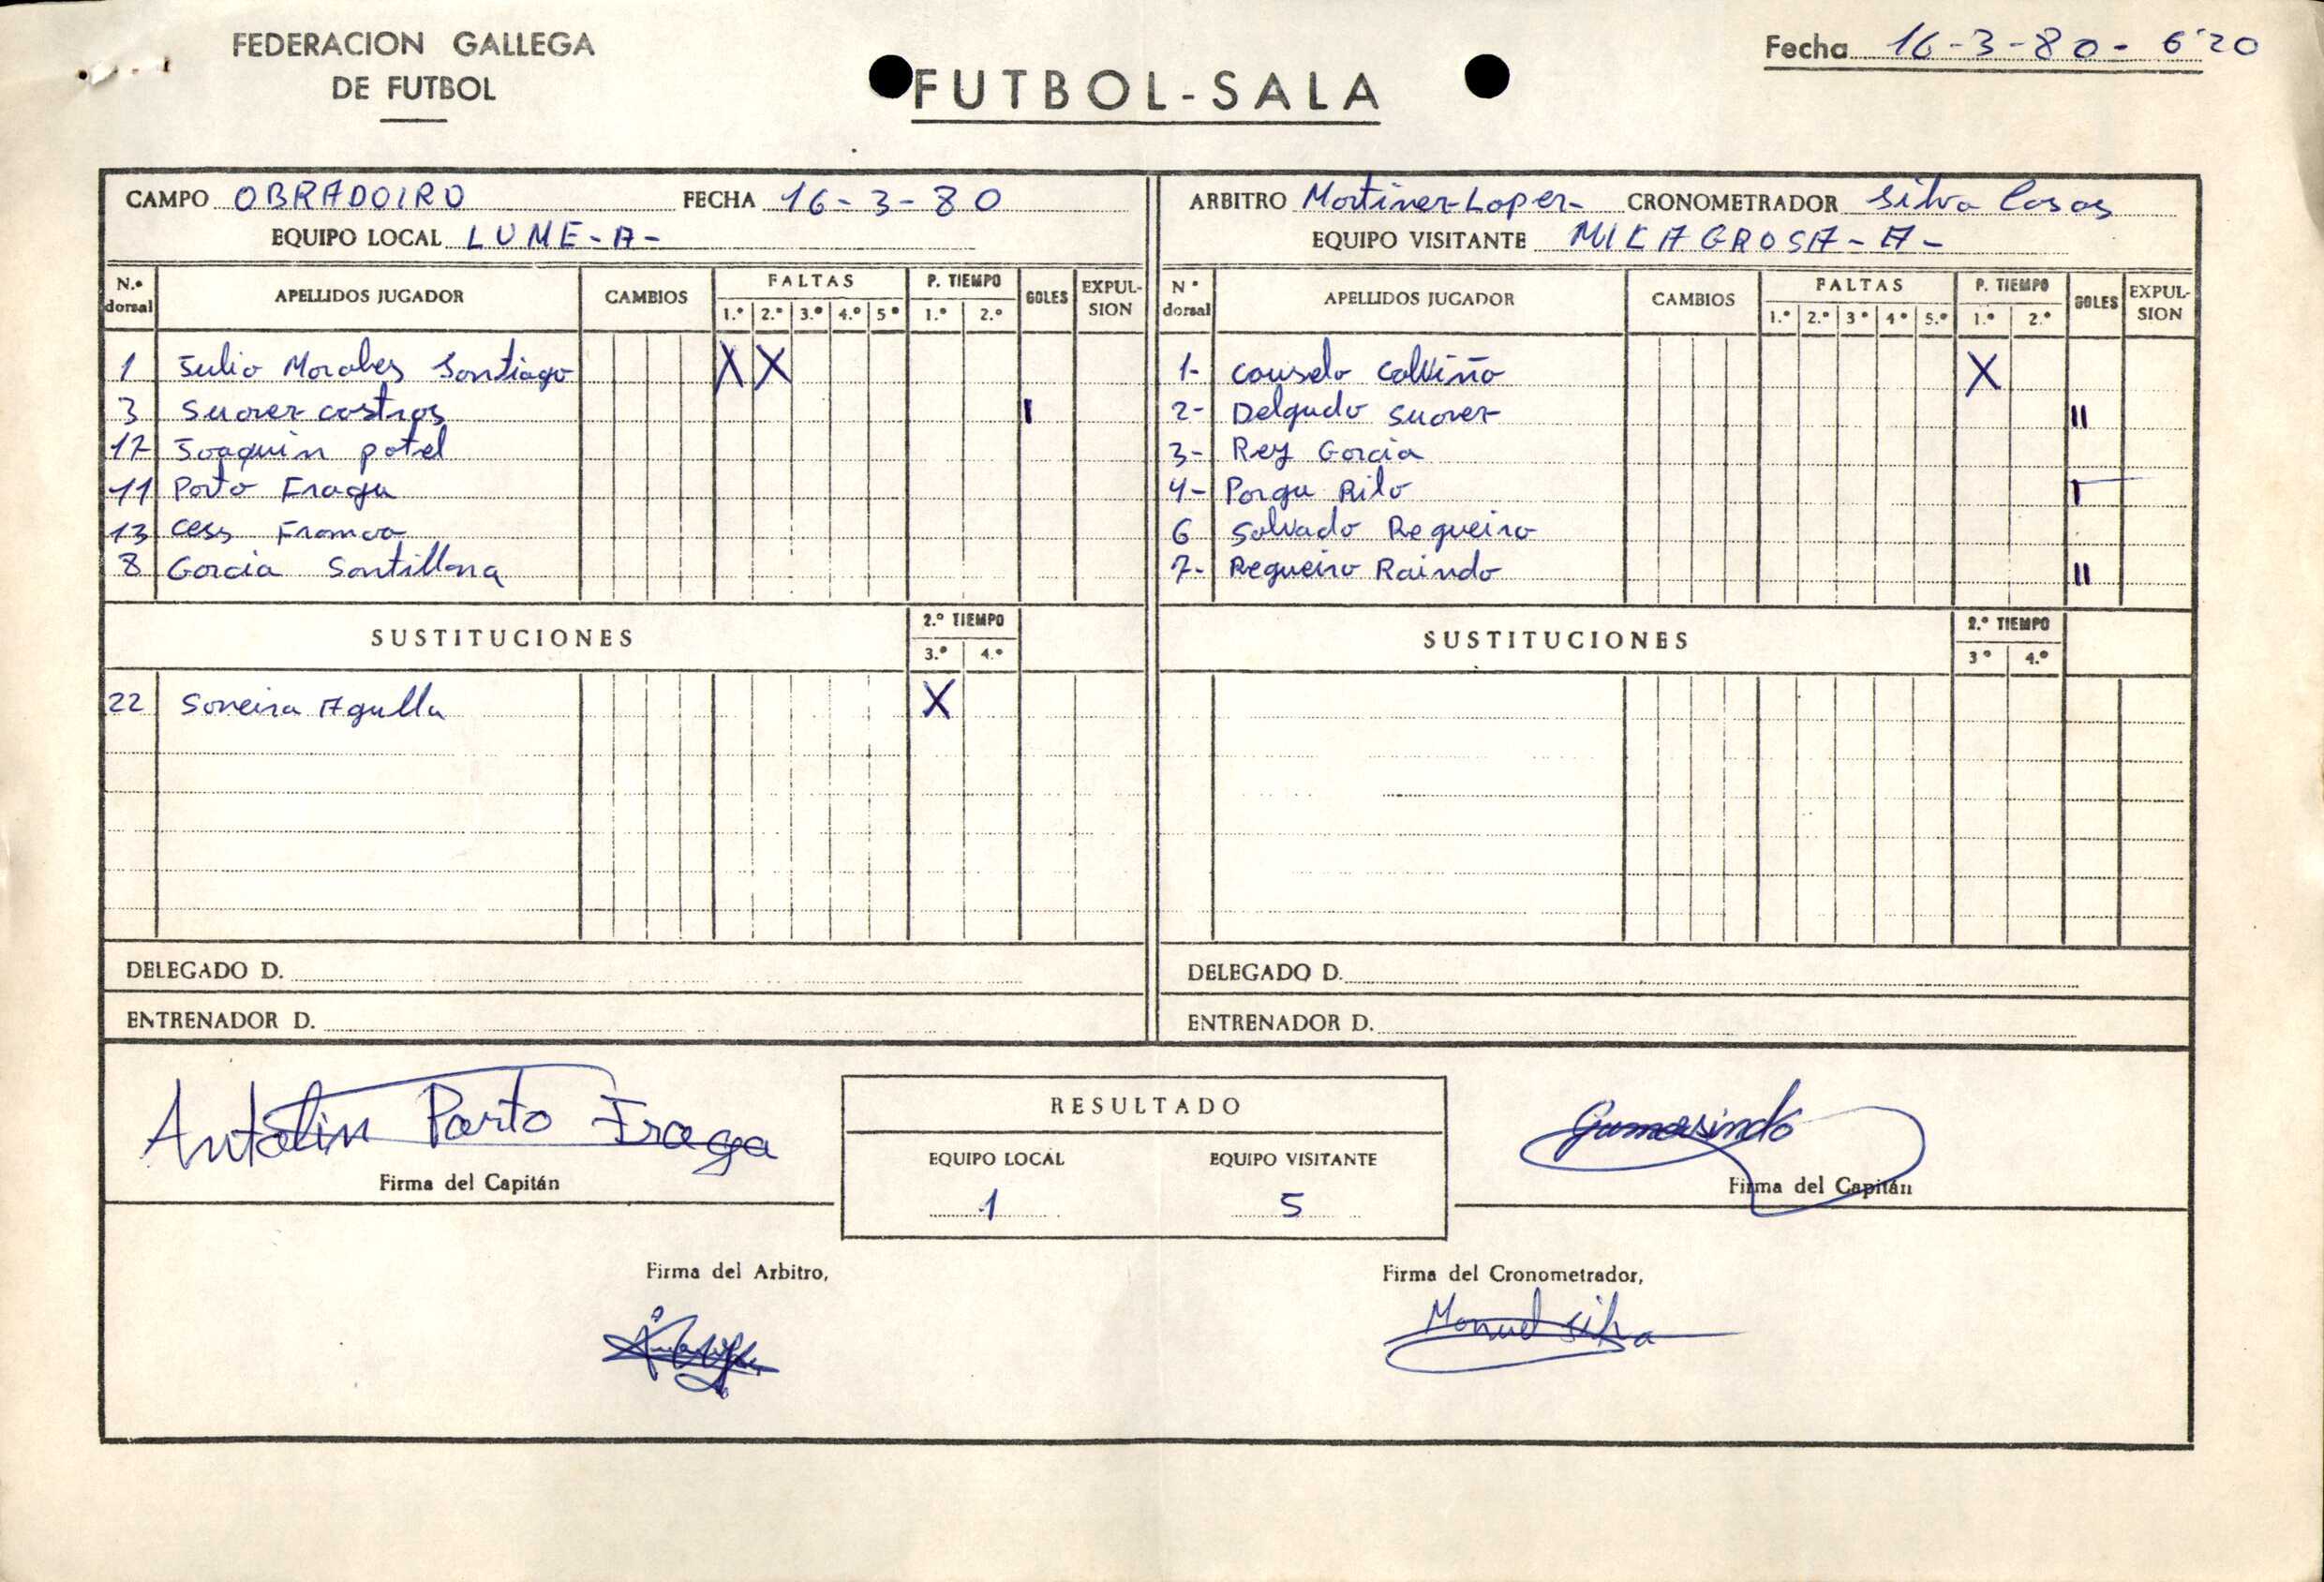 FEDERACION GALLEGA
DE FUTBOL
FUTBOL-SALA
Fecha 16-3-80- 6'20
CAMPO OBRADOIRO FECHA 16-3-80
EQUIPO LOCAL LUME-A-
N.º dorsal APELLIDOS JUGADOR CAMBIOS FALTAS 1.º 2.º 3.º 4.º 5º P. TIEMPO 1.º 2.º GOLES EXPUL-SION
1 Julio Morales Santiago X X
3 Suarez castros I
12 Joaquin potel
11 Porto Fraga
13 Cess Franco
8 Garcia Santillana
SUSTITUCIONES 2.º TIEMPO 3.º 4.º
22 Soneira Agulla X
DELEGADO D.
ENTRENADOR D.
ARBITRO Martinez-Lopez- CRONOMETRADOR Silva Casas
EQUIPO VISITANTE MILAGROSA-A-
Nº dorsal APELLIDOS JUGADOR CAMBIOS FALTAS 1.º 2.º 3º 4º 5.º P. TIEMPO 1.º 2.º GOLES EXPUL-SION
1- Couselo Calviño X
2- Delgado Suarez II
3- Rey Garcia
4- Porga Rilo I
6 Salvado Regueiro
7- Regueiro Raindo II
SUSTITUCIONES 2.º TIEMPO 3º 4.º
DELEGADO D.
ENTRENADOR D.
Antolin Porto Fraga
Firma del Capitán
RESULTADO
EQUIPO LOCAL EQUIPO VISITANTE
1 5
Gumersindo
Firma del Capitán
Firma del Arbitro,
Firma del Cronometrador,
Manuel Silva